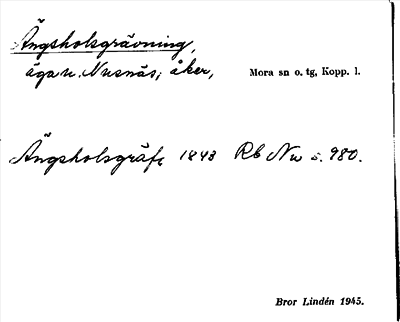 Ängsholsgrävning,
äga u. Nusnäs; åker, Mora sn o. tg, Kopp. l.
Ängsholsgräfv 1843 Rb Nu s. 980.
Bror Lindén 1945.